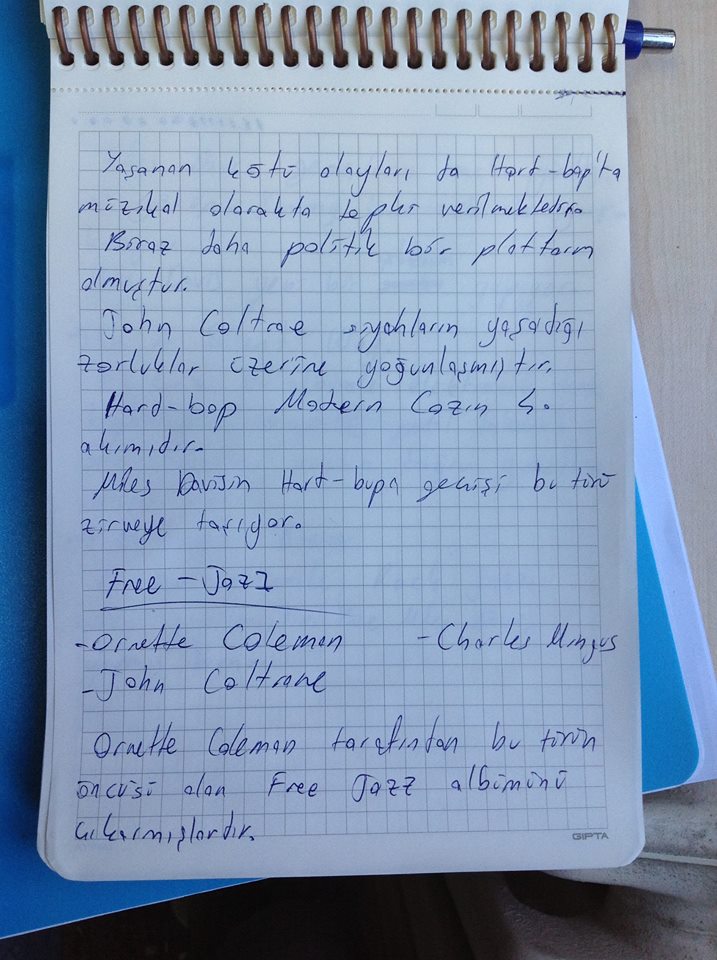 Yaşanan kötü olayları da Hart-bap'ta
müzikal olarakta tepki verilmektedir.
Biraz daha politik bir platform
olmuştur.
John Coltrae siyahların yaşadığı
zorluklar üzerine yoğunlaşmıştır.
Hard-bop Modern Cazın 4.
akımıdır.
Miles Davisin Hart-bupa geçişi bu türü
zirveye taşıyor.
Free - Jazz
-Ornette Coleman -Charles Mingus
-John Coltrane
Ornette Coleman tarafından bu türün
öncüsü olan Free Jazz albümünü
çıkarmışlardır.
GIPTA